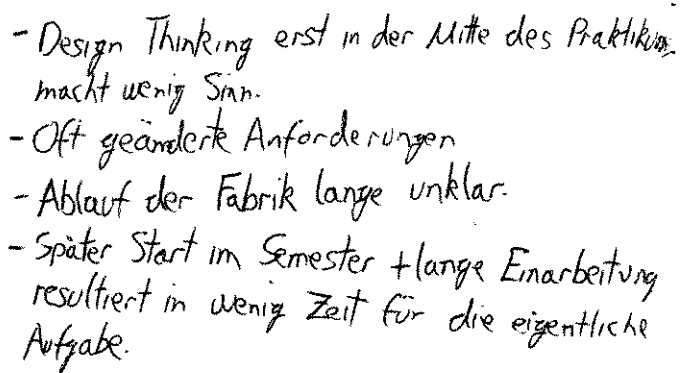 - Design Thinking erst in der Mitte des Praktikums
macht wenig Sinn.
- Oft geänderte Anforderungen
- Ablauf der Fabrik lange unklar.
- Später Start im Semester + lange Einarbeitung
resultiert in wenig Zeit für die eigentliche
Aufgabe.